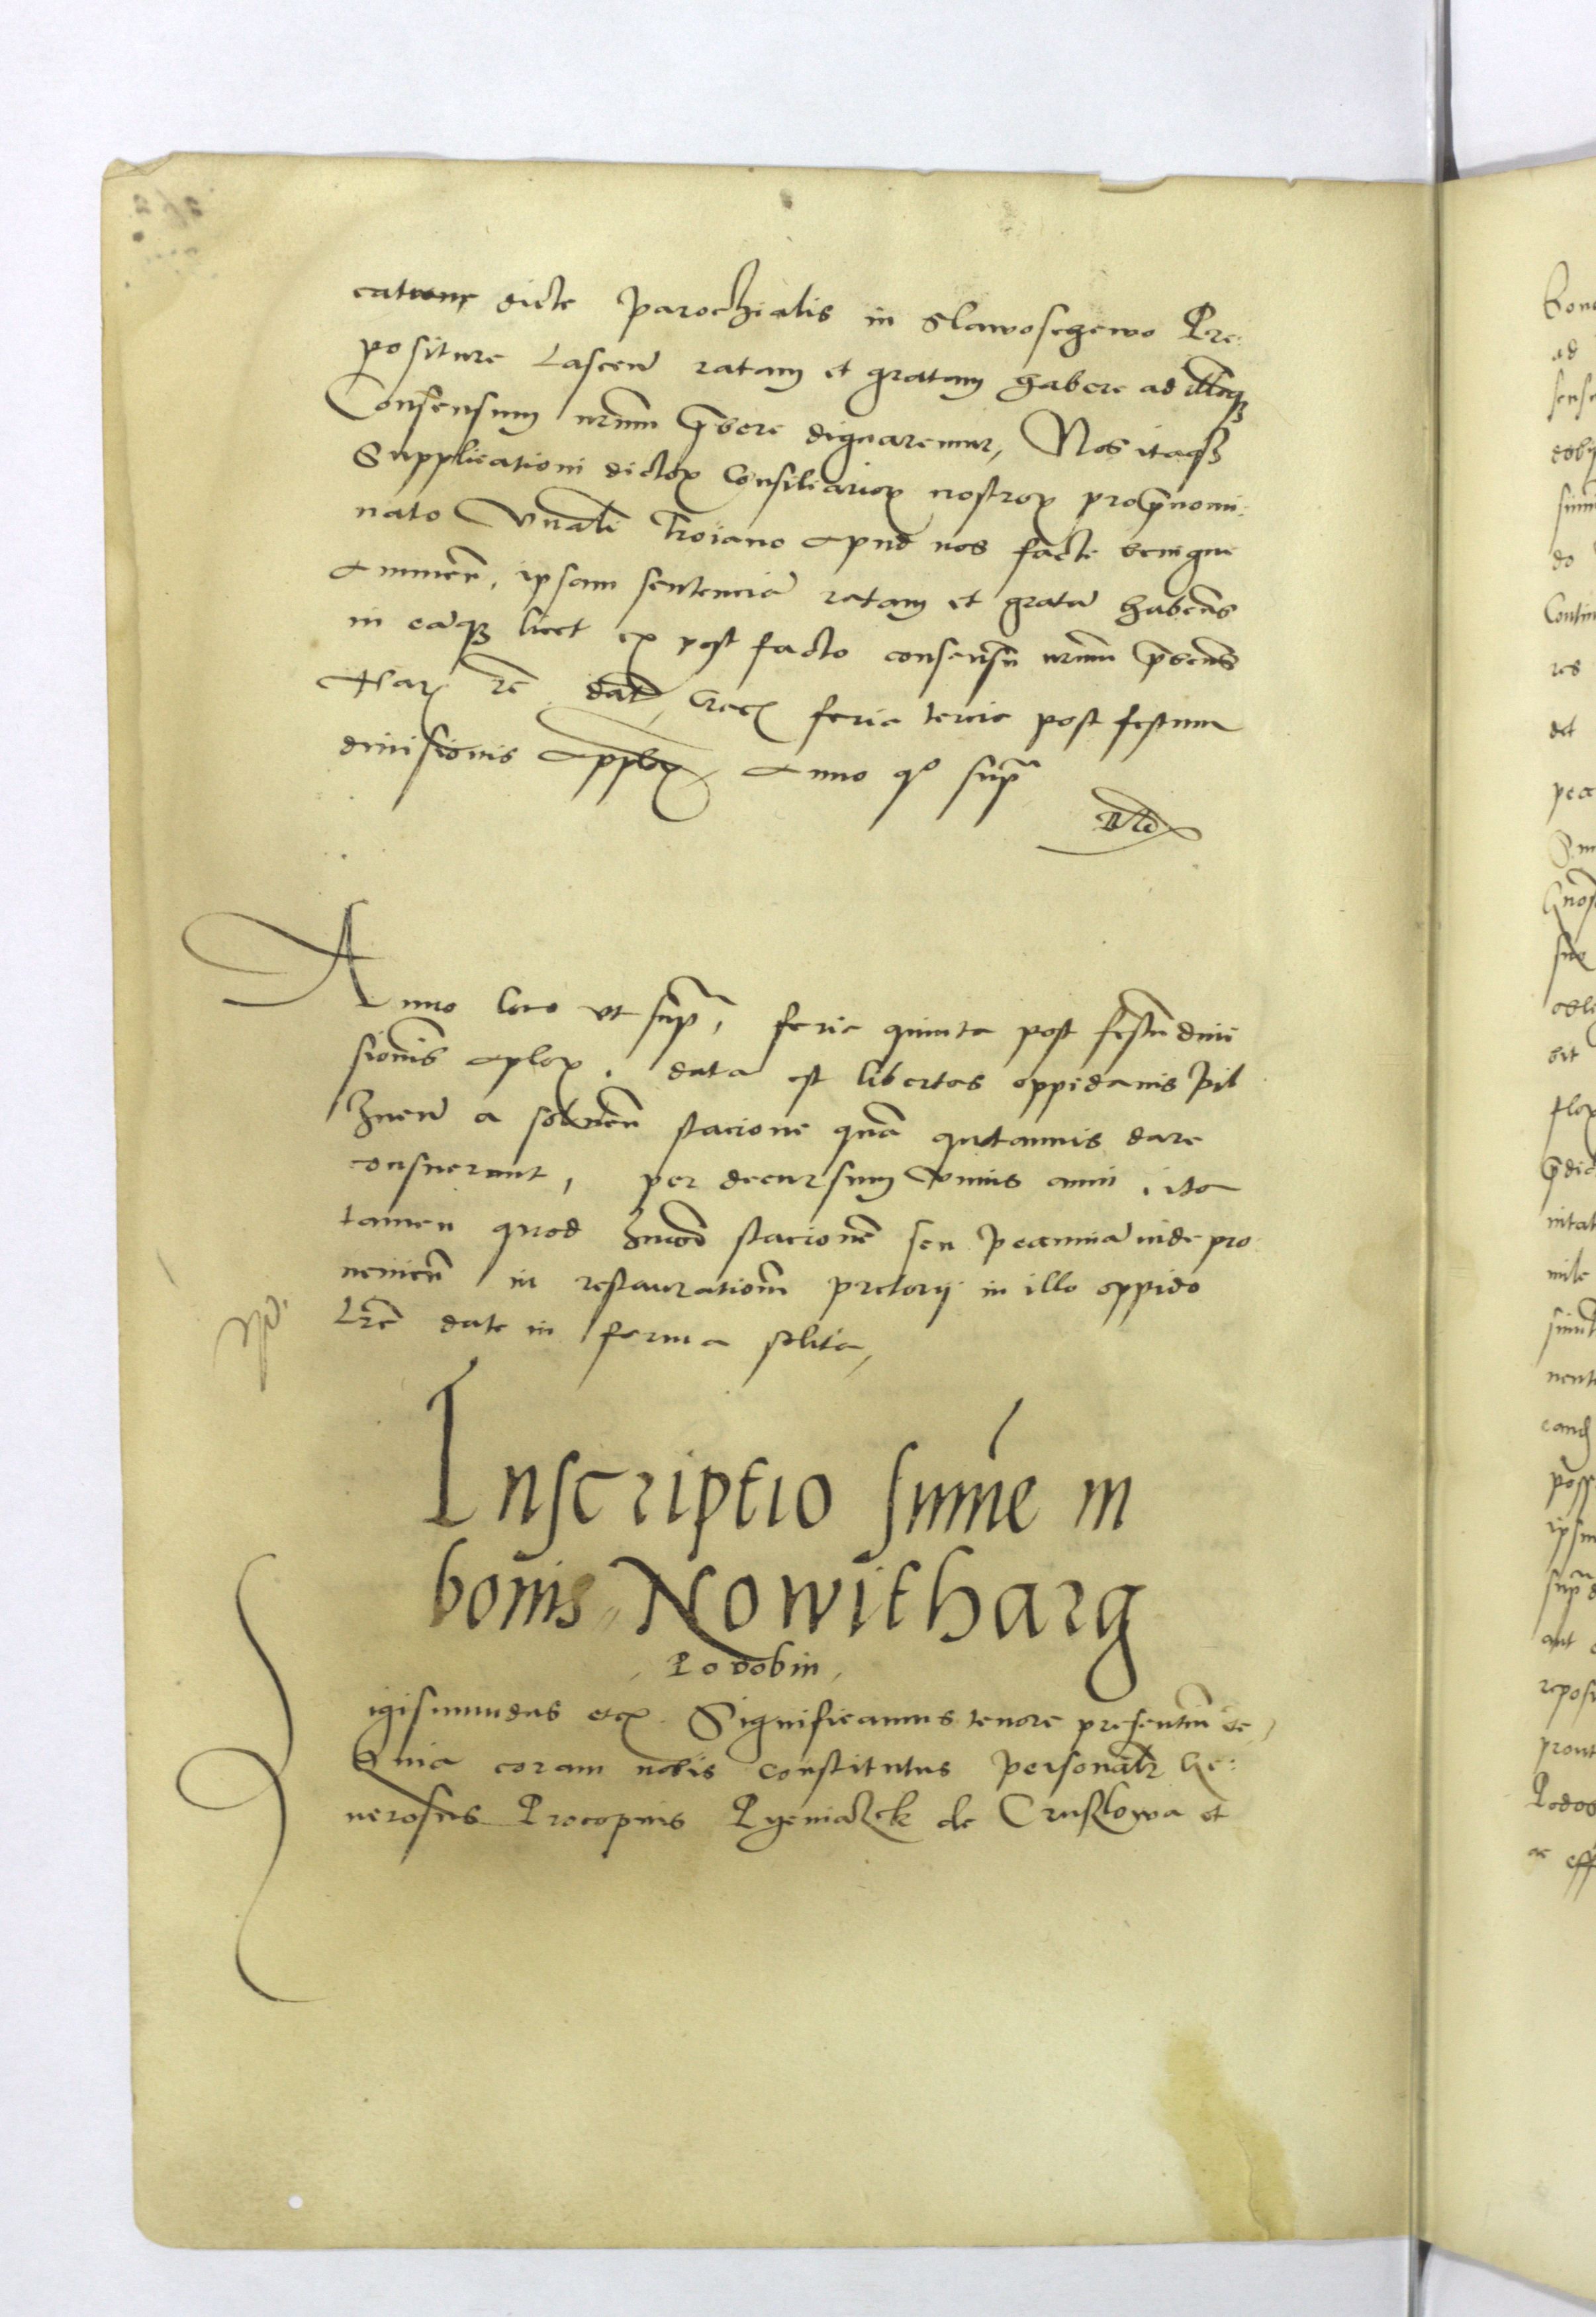 catione dicte parochialis in Slawosegewo Pre:
positure Lascen ratam et gratam habere ad illāq
Consensum nrum prebere dignaremur, Nos itaq
Supplicationi dictor Consiliarior nostror pro prenomi:
nato Troiano apud nos facte benigne
annuen, ipsam sentencia ratam et grata habens
in eaq licet ex post facto consensu nrum prebens
Har re dat, Crac feria tercia post festum
divisionis Applor Anno quo supra
Anno loco ut supra, feria quinta post festu divi
sionis aplor. data est libertas oppidanis Pil
znen a solven stacione qua qutannis dare
consuerunt, per decursum unius anni, ita
tamen quod stacione seu pecunia inde pro
venien in restauratiom pretorii in illo oppido
Lre date in forma solita,
Inscriptio sume in
bonis Nowitharg
Podobin
igismundus etc. Significamus tenore presentiu etc,
Quia coram nobis constitutus personalr Ge:
nerosus Procopius Pyeniazek de Cruszlowa et